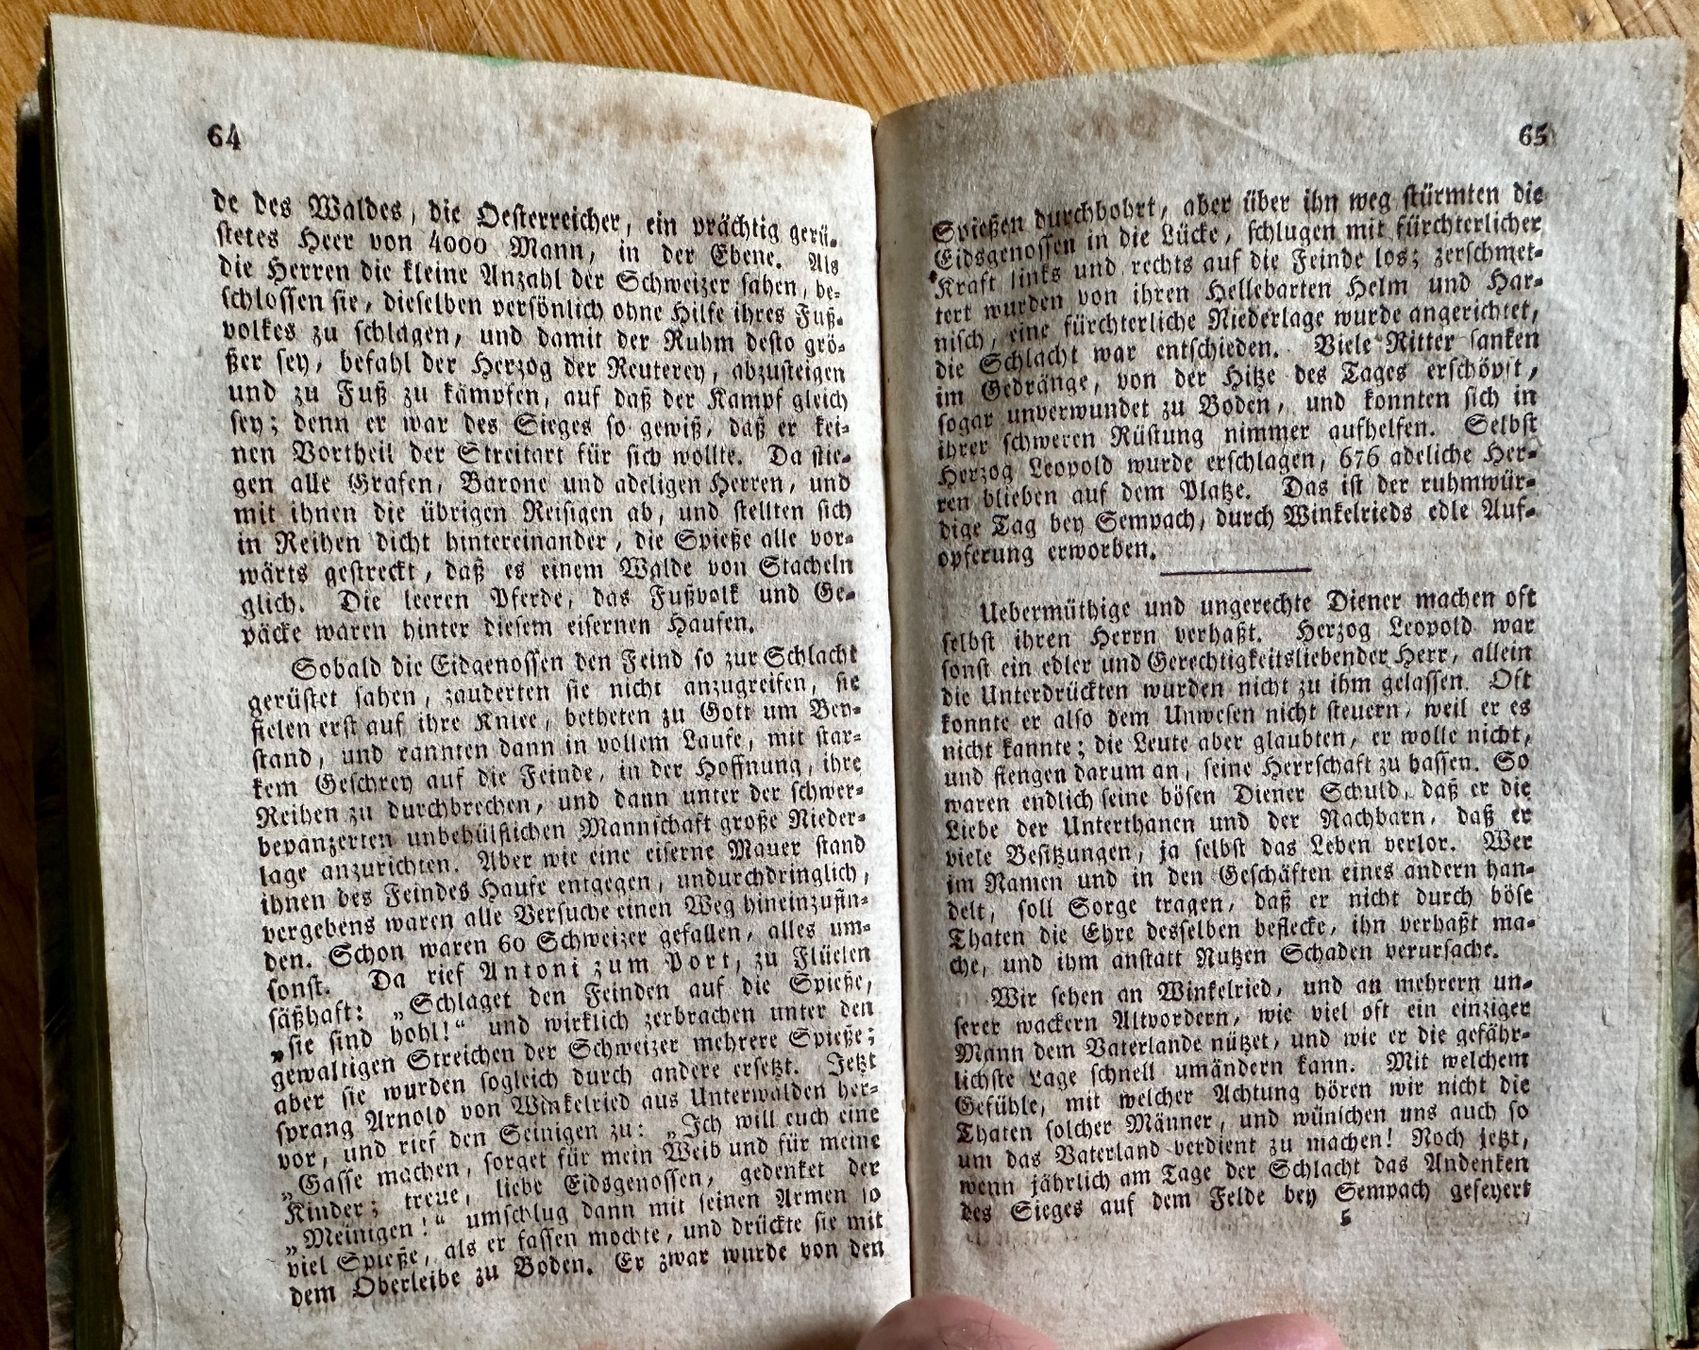 64
de des Waldes, die Oesterreicher, ein prächtig gerü-
stetes Heer von 4000 Mann, in der Ebene. Als
die Herren die kleine Anzahl der Schweizer sahen, be-
schlossen sie, dieselben persönlich ohne Hilfe ihres Fuß-
volkes zu schlagen, und damit der Ruhm desto grö-
ßer sey, befahl der Herzog der Reuterey, abzusteigen
und zu Fuß zu kämpfen, auf daß der Kampf gleich
sey; denn er war des Sieges so gewiß, daß er kei-
nen Vortheil der Streitart für sich wollte. Da stie-
gen alle Grafen, Barone und adeligen Herren, und
mit ihnen die übrigen Reisigen ab, und stellten sich
in Reihen dicht hintereinander, die Spieße alle vor-
wärts gestreckt, daß es einem Walde von Stacheln
glich. Die leeren Pferde, das Fußvolk und Ge-
päcke waren hinter diesem eisernen Haufen.
Sobald die Eidgenossen den Feind so zur Schlacht
gerüstet sahen, zauderten sie nicht anzugreifen, sie
fielen erst auf ihre Kniee, betheten zu Gott um Bey-
stand, und rannten dann in vollem Laufe, mit star-
kem Geschrey auf die Feinde, in der Hoffnung, ihre
Reihen zu durchbrechen, und dann unter der schwer-
bepanzerten unbehülflichen Mannschaft große Nieder-
lage anzurichten. Aber wie eine eiserne Mauer stand
ihnen des Feindes Haufe entgegen, undurchdringlich,
vergebens waren alle Versuche einen Weg hineinzufin-
den. Schon waren 60 Schweizer gefallen, alles um-
sonst. Da rief Antoni zum Port, zu Flüelen
säßhaft: „Schlaget den Feinden auf die Spieße,
„sie sind hohl!“ und wirklich zerbrachen unter den
gewaltigen Streichen der Schweizer mehrere Spieße;
aber sie wurden sogleich durch andere ersetzt. Jetzt
sprang Arnold von Winkelried aus Unterwalden her-
vor, und rief den Seinigen zu: „Ich will euch eine
„Gasse machen, sorget für mein Weib und für meine
Kinder; treue, liebe Eidsgenossen, gedenket der
„Meinigen!“ umschlug dann mit seinen Armen so
viel Spieße, als er fassen mochte, und drückte sie mit
dem Oberleibe zu Boden. Er zwar wurde von den
65
Spießen durchbohrt, aber über ihn weg stürmten die
Eidsgenossen in die Lücke, schlugen mit fürchterlicher
Kraft links und rechts auf die Feinde los; zerschmet-
tert wurden von ihren Hellebarten Helm und Har-
nisch, eine fürchterliche Niederlage wurde angerichtet,
die Schlacht war entschieden. Viele Ritter sanken
im Gedränge, von der Hitze des Tages erschöpft,
sogar unverwundet zu Boden, und konnten sich in
ihrer schweren Rüstung nimmer aufhelfen. Selbst
Herzog Leopold wurde erschlagen, 676 adeliche Her-
ren blieben auf dem Platze. Das ist der ruhmwür-
dige Tag bey Sempach, durch Winkelrieds edle Auf-
opferung erworben.
Uebermüthige und ungerechte Diener machen oft
selbst ihren Herrn verhaßt. Herzog Leopold war
sonst ein edler und Gerechtigkeitsliebender Herr, allein
die Unterdrückten wurden nicht zu ihm gelassen. Oft
konnte er also dem Unwesen nicht steuern, weil er es
nicht kannte; die Leute aber glaubten, er wolle nicht,
und fiengen darum an, seine Herrschaft zu hassen. So
waren endlich seine bösen Diener Schuld, daß er die
Liebe der Unterthanen und der Nachbarn, daß er
viele Besitzungen, ja selbst das Leben verlor. Wer
im Namen und in den Geschäften eines andern han-
delt, soll Sorge tragen, daß er nicht durch böse
Thaten die Ehre desselben beflecke, ihn verhaßt ma-
che, und ihm anstatt Nutzen Schaden verursache.
Wir sehen an Winkelried, und an mehrern un-
serer wackern Altvordern, wie viel oft ein einziger
Mann dem Vaterlande nützet, und wie er die gefähr-
lichste Lage schnell umändern kann. Mit welchem
Gefühle, mit welcher Achtung hören wir nicht die
Thaten solcher Männer, und wünschen uns auch so
um das Vaterland verdient zu machen! Noch jetzt,
wenn jährlich am Tage der Schlacht das Andenken
des Sieges auf dem Felde bey Sempach gefeyert
5